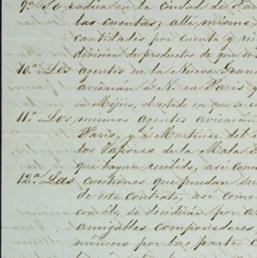 9ª Se radica en la Ciudad de Par
las cuentas; alli mismo
cantidades por cuenta y ri
division de productos de que se
10ª Los agentes de la Nueva Grana
avisaran á N. en Paris y
en Mejico, el saldo en que se
11ª Los mismos agentes avisaran
Paris, y á Martinez del
los Vapores de la Mala R
que hayan recibido, asi como
12ª Las cuestiones que puedan su
de este contrato, asi como
con el, se decidirán por a
amigables componedores
numero por las partes c